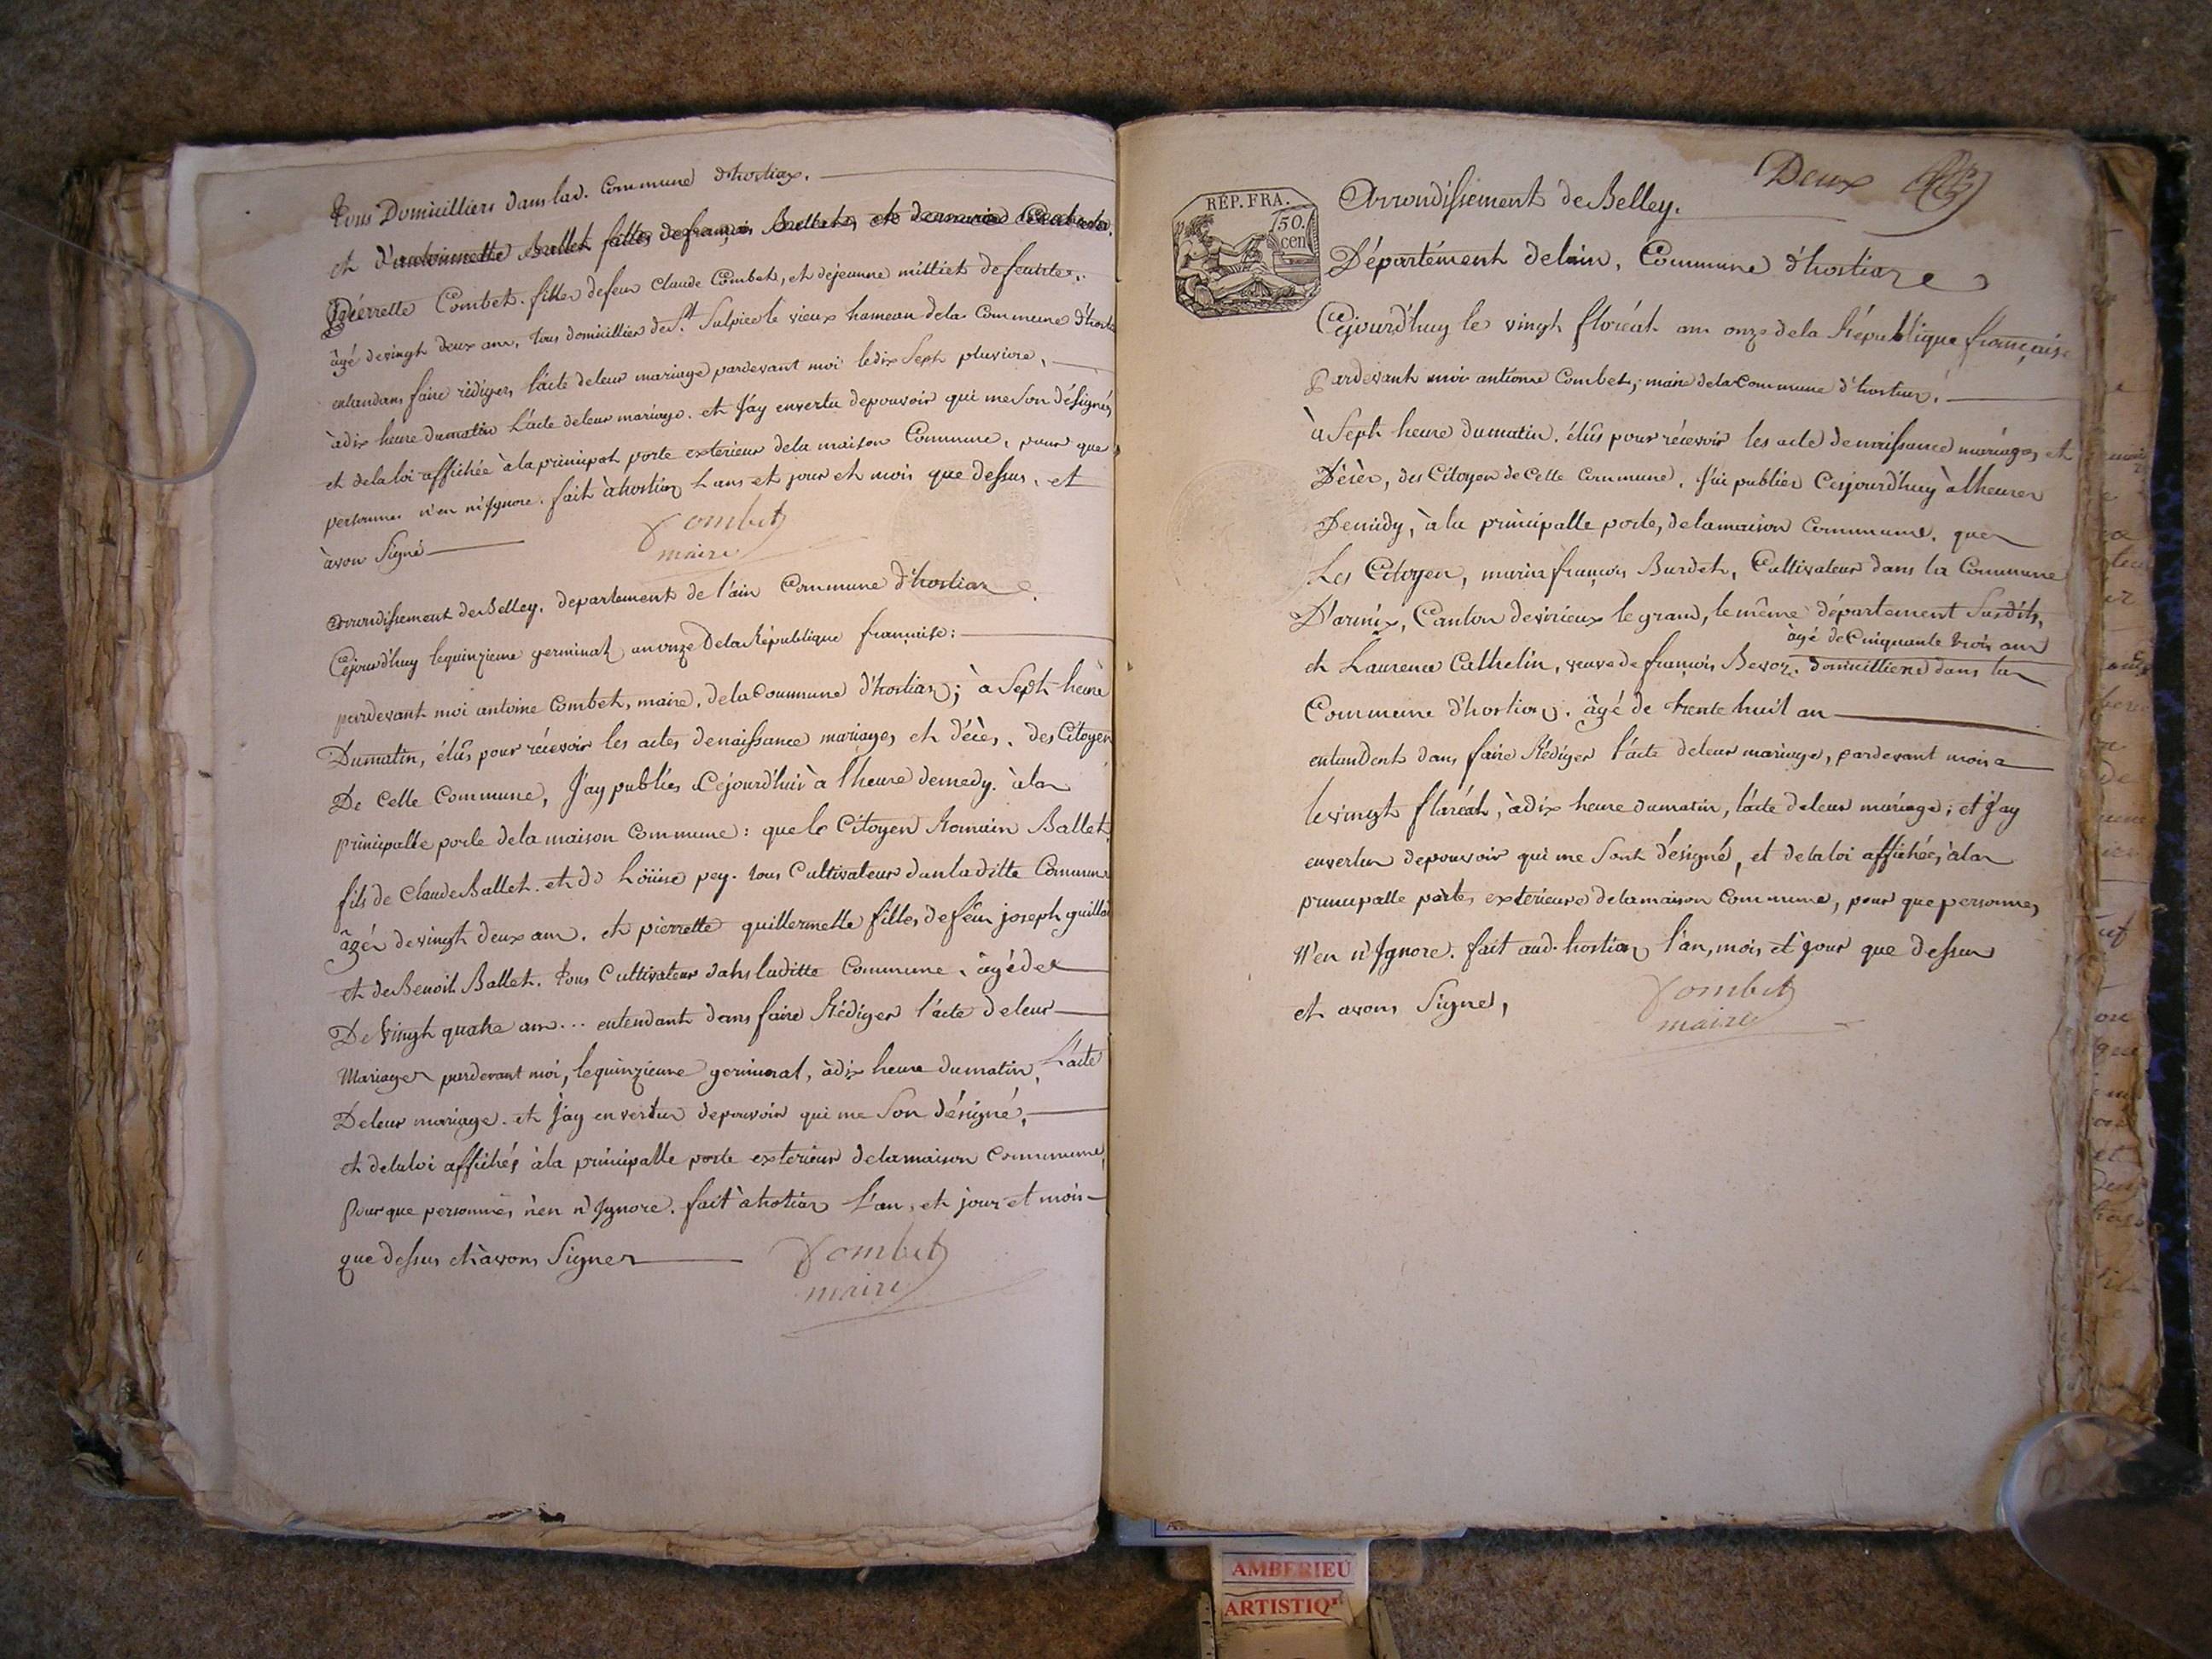 tous Domicilliers dans lad. Commune d'hostiaz.
et d'antoinnette Ballet filles de françois Ballet, et de
Piérrette Combet. filles de feu Claude Combet, et de jeanne milliet
âgé de vingt deux ans, tous domicillier de St. Sulpice le vieux hameau de la Commune d'host
entandans faire rédiger, l'acte de leur mariage pardevant moi le dix Sept pluviose,
à dix heure du matin L'acte de leur mariage. et J'ay envertu de pouvoir qui me Son désignés
et de la loi affichée à la principal porte exterieur de la maison Commune, pour que
personne n'en n'Ignore. fait à hostiaz L'ans et jour et mois que dessus, et
àvon Signé Combet
maire
arrondissement de Belley. departement de l'ain Commune d'hostiaz
Cejourd'huy le quinzieme germinal an onze De la République française:
pardevant moi antoine Combet, maire, de la Commune d'hostiaz; à Sept heure
Du matin, élûs pour récevoir les actes de naissance mariages et décès. des Citoyen
De Cette Commune, J'ay publiés Cejourd'huis à l'heure de medy. à la
principalle porte de la maison Commune: que le Citoyen Romain Ballet
fils de Claude Ballet. et de Loüise pey. tous Cultivateur dan la ditte Commune
âgé de vingt deux ans. et pierrette quillermette filles de feu joseph
et de Benoit Ballet. tous Cultivateur dahs laditte Commune. âgé de
De vingt quatre ans... entendant dans faire Rédiger l'acte de leur
Mariage pardevant moi, le quinzieme germinal, à dix heure du matin, L'acte
De leur mariage. et J'ay en vertu de pouvoir qui me Son désigné,
et de la loi affichés à la principalle porte exterieur de la maison Commune,
pour que personnes n'en n'Ignore. fait à hotiaz l'an, et jour et mois
que dessus et àvons Signer Combet
maire
Deux
RÉP. FRA.
50.
cen
Arrondissement de Belley.
Département de lain, Commune d'hostiaz
Cejourd'huy le vingt floréal an onze de la République française
Pardevant moi antionne Combet, maire de la Commune d'hostiaz.
à Sept heure du matin. élûs pour récevoir les acte de naissance mariages et
Décès, des Citoyen de Cette Commune. J'ai publiés Cejourd'huy à l'heure
De midy, à la principalle porte, de la maison Commune. que
Les Citoyen, marin françois Burdet, Cultivateur dans la Commune
D'armix, Canton de virieux le grand, le même département Susdits,
âgé de Cinquante trois ans
et Laurence Cathelin, veuve de françois Bevoz. domicilliere dans la
Commune d'hostiaz. âgé de trente huit an
entandents dans faire Rédiger l'acte de leur mariage, pardevant mois
le vingt flaréal, à dix heure du matin, l'acte de leur mariage; et J'ay
envertu de pouvoir qui me Sont désigné, et de la loi affichée, à la
principalle portes exterieure de la maison Commune, pour que personnes
N'en n'Ignore. fait aud. hostiaz l'an, mois et jour que dessus
et avons Signé, Combet
maire
AMBERIEU
ARTISTIQ